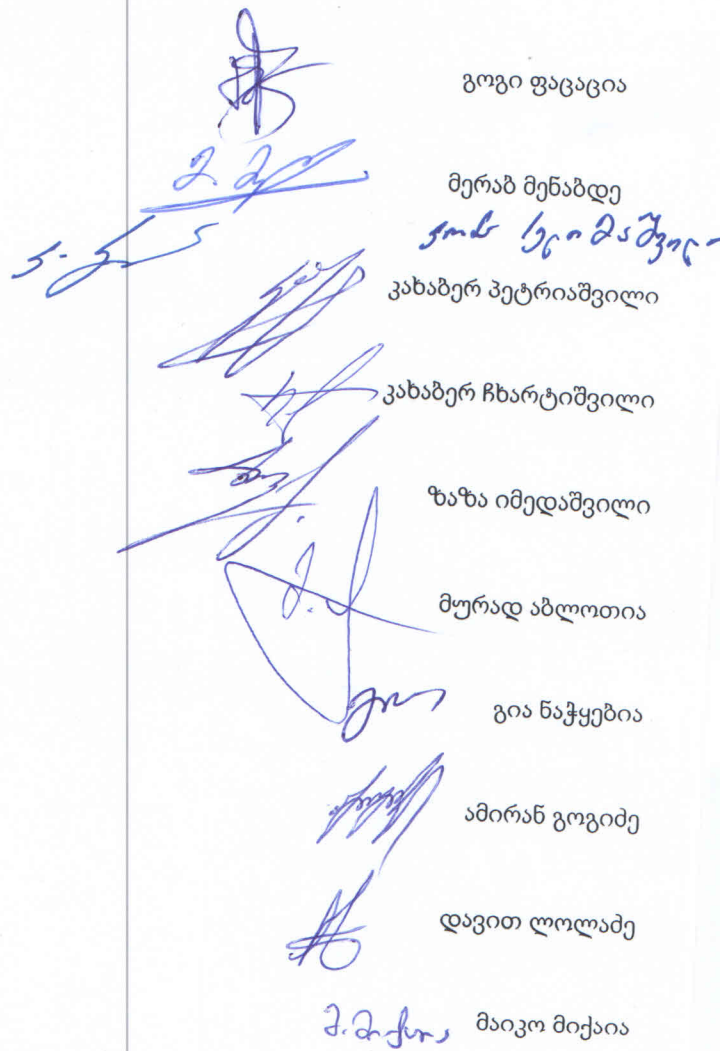 გოგი ფაცაცია
მ. მე
მერაბ მენაბდე
კახაბერ პეტრიაშვილი
კახაბერ ჩხარტიშვილი
ზაზა იმედაშვილი
მურად აბლოთია
გია ნაჭყებია
ამირან გოგიძე
დავით ლოლაძე
მ. მიქაია მაიკო მიქაია